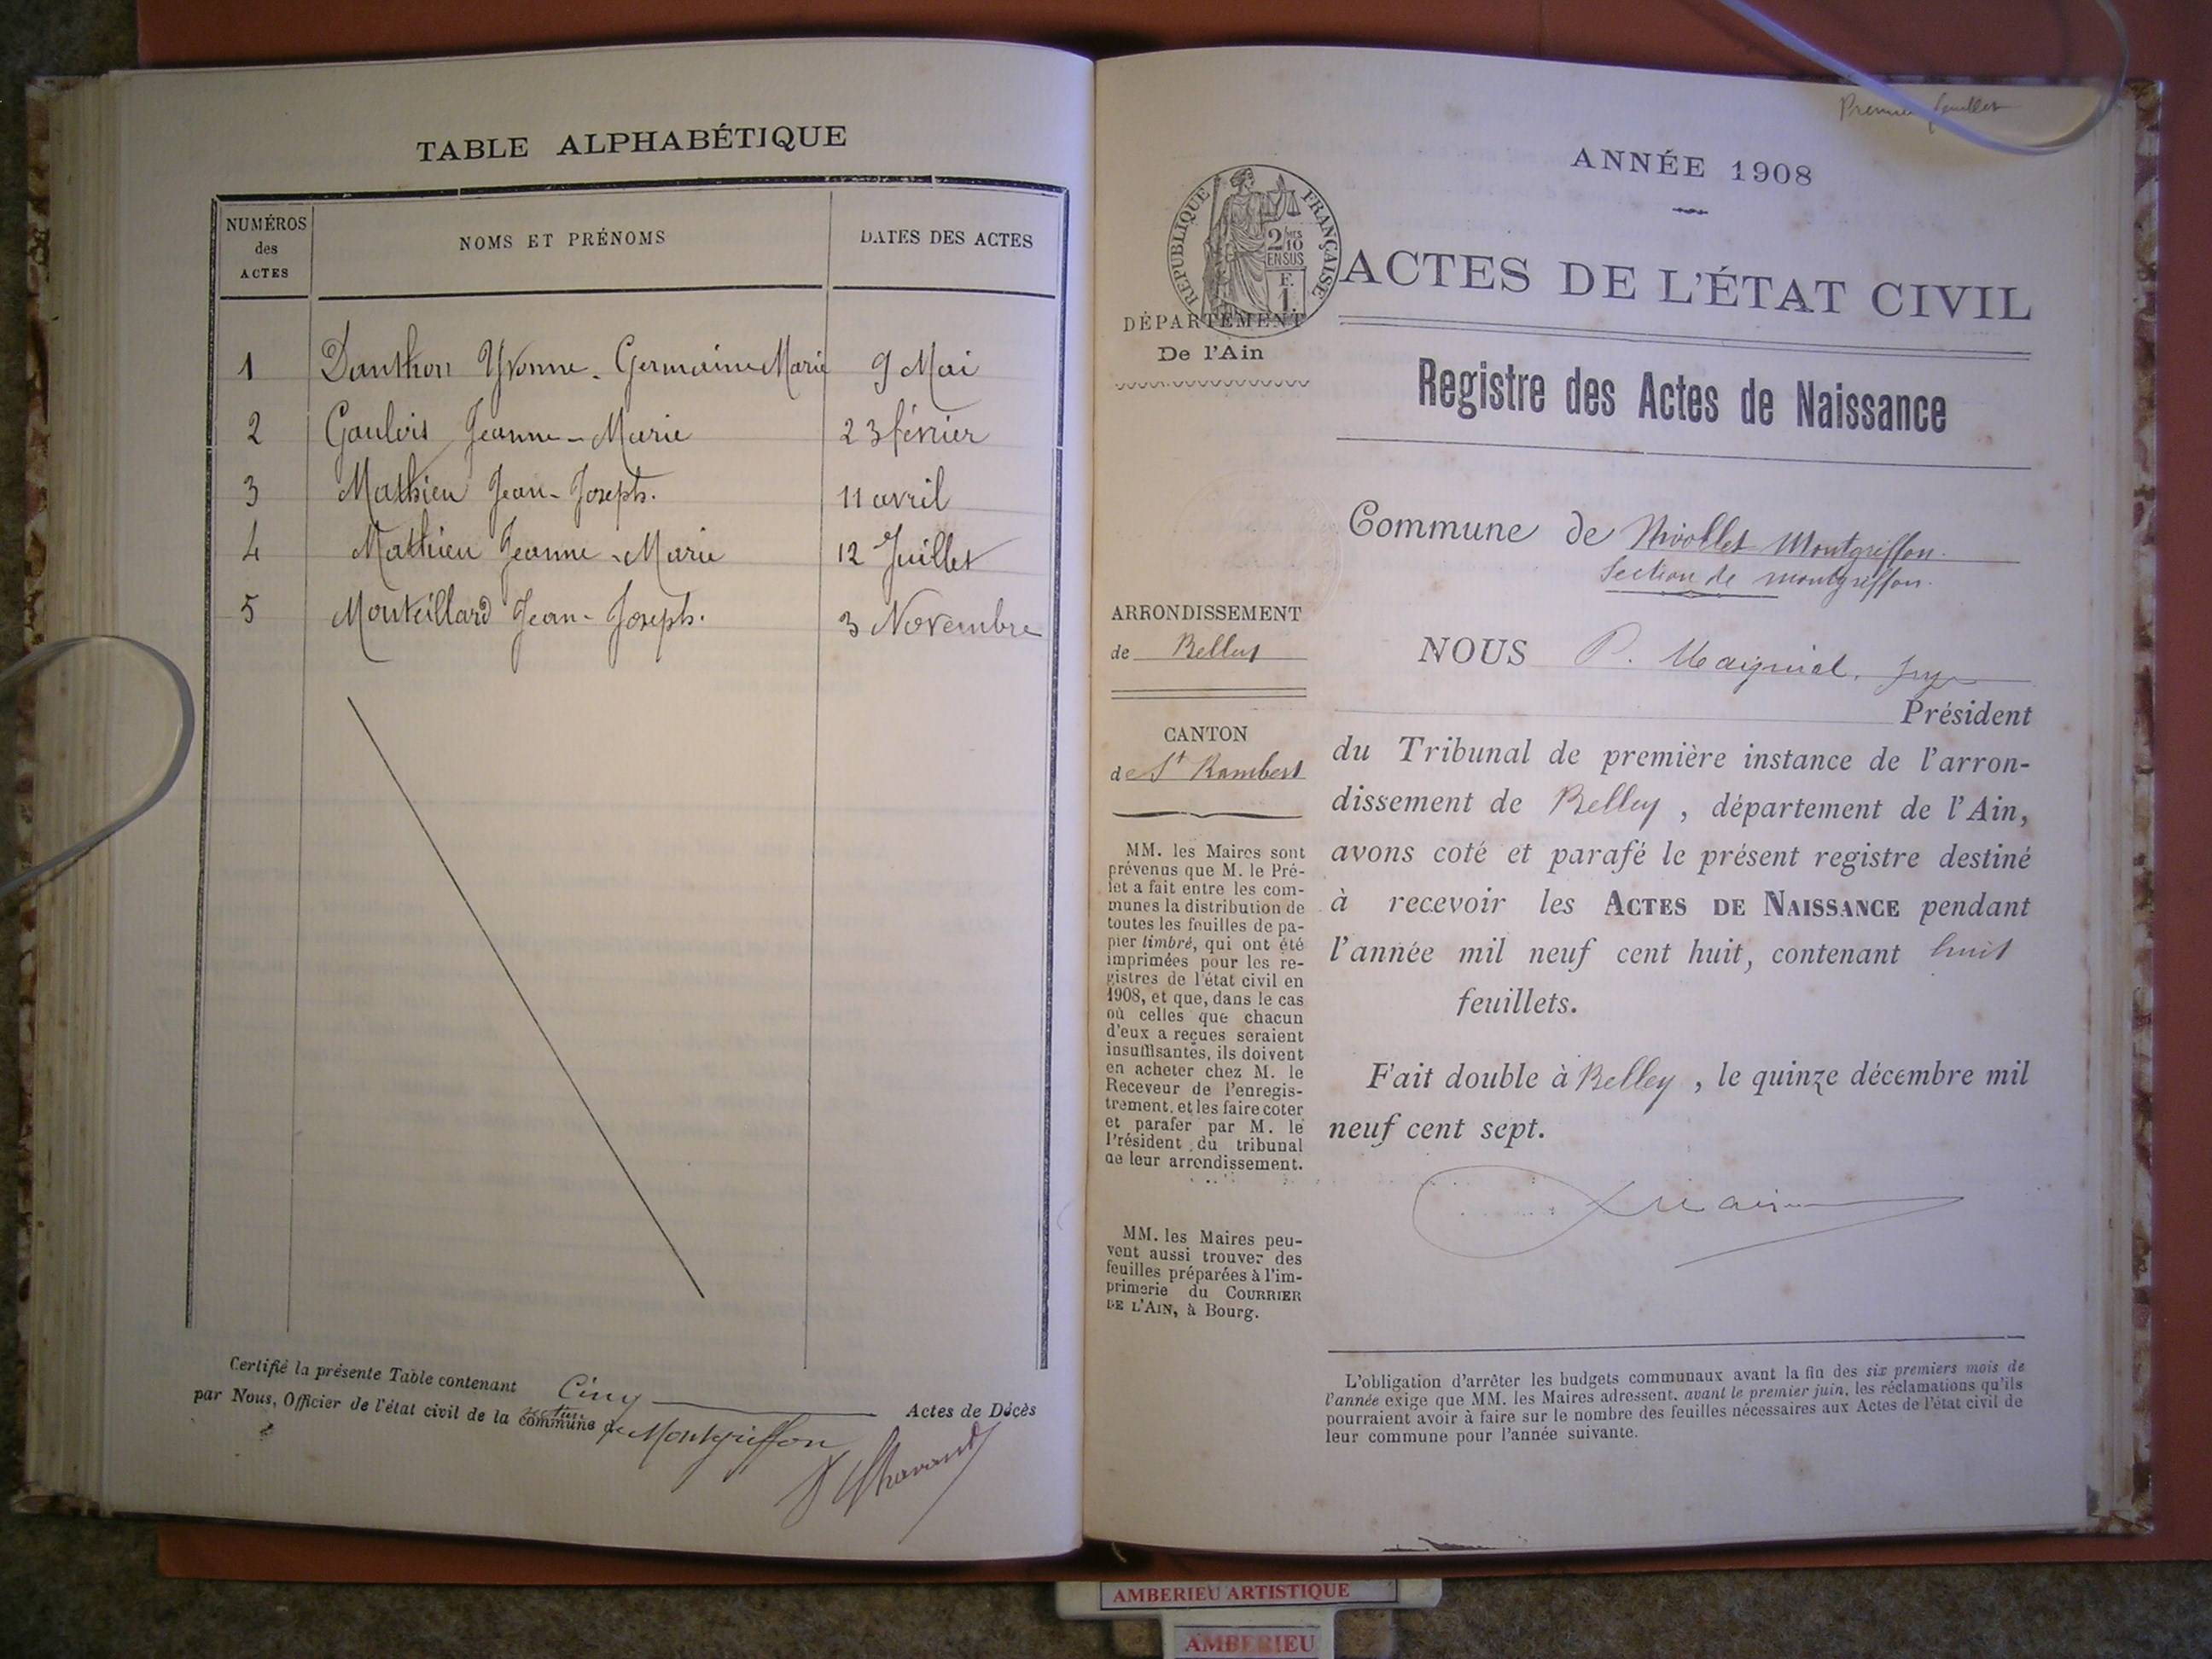 TABLE ALPHABÉTIQUE
NUMÉROS des ACTES
NOMS ET PRÉNOMS
DATES DES ACTES
1 Danthon Yvonne-Germaine Marie 9 Mai
2 Gaulois Jeanne-Marie 23 février
3 Mathieu Jean-Joseph. 11 avril
4 Mathieu Jeanne-Marie 12 Juillet
5 Monteillard Jean-Joseph. 3 Novembre
Certifié la présente Table contenant Cinq Actes de Décès
par Nous, Officier de l'état civil de la commune section de Montgriffon
Premier feuillet
ANNÉE 1908
RÉPUBLIQUE FRANÇAISE
2/10 EN SUS
F. 1
ACTES DE L'ÉTAT CIVIL
DÉPARTEMENT
De l'Ain
Registre des Actes de Naissance
Commune de Nivollet Montgriffon.
Section de montgriffon.
ARRONDISSEMENT
de Belley
CANTON
de St Rambert
MM. les Maires sont
prévenus que M. le Pré-
fet a fait entre les com-
munes la distribution de
toutes les feuilles de pa-
pier timbré, qui ont été
imprimées pour les re-
gistres de l'état civil en
1908, et que, dans le cas
où celles que chacun
d'eux a reçues seraient
insuffisantes, ils doivent
en acheter chez M. le
Receveur de l'enregis-
trement, et les faire coter
et parafer par M. le
Président du tribunal
de leur arrondissement.
MM. les Maires peu-
vent aussi trouver des
feuilles préparées à l'im-
primerie du COURRIER
DE L'AIN, à Bourg.
NOUS P.
Président
du Tribunal de première instance de l'arron-
dissement de Belley, département de l'Ain,
avons coté et parafé le présent registre destiné
à recevoir les ACTES DE NAISSANCE pendant
l'année mil neuf cent huit, contenant huit
feuillets.
Fait double à Belley, le quinze décembre mil
neuf cent sept.
L'obligation d'arrêter les budgets communaux avant la fin des six premiers mois de
l'année exige que MM. les Maires adressent, avant le premier juin, les réclamations qu'ils
pourraient avoir à faire sur le nombre des feuilles nécessaires aux Actes de l'état civil de
leur commune pour l'année suivante.
AMBERIEU ARTISTIQUE
AMBERIEU